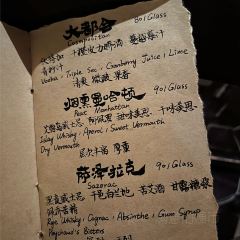 大都会 90/Glass
Cosmopolitan
伏特加 蔓越莓汁
青柠汁
Vodka, Triple Sec, Cranberry Juice, Lime
清爽 微酸 果香
烟熏曼哈顿 90/Glass
Peat Manhattan
艾雷岛威士忌 阿佩罗 甜味美思 干味美思
Islay Whisky, Aperol, Sweet Vermouth
Dry Vermouth
层次丰富 厚重
萨泽拉克 90/Glass
Sazerac
黑麦威士忌 干邑白兰地 苦艾酒
Rye Whisky, Cognac, Absinthe, Gum Syrup
Peychaud's Bitters